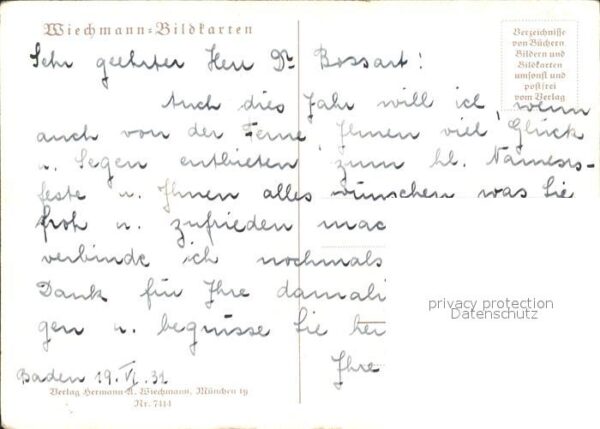 Wiechmann-Bildkarten
Verzeichnisse
von Büchern
Bildern und
Bildkarten
umsonst und
postfrei
vom Verlag
Sehr geehrter Herr Dr. Bossart!
Auch dies Jahr will ich, wenn
auch von der Ferne, Ihnen viel Glück
u. Segen entbieten zum hl. Namens-
feste u. Ihnen alles wünschen was Sie
froh u. zufrieden mac
verbinde ich nochmals
Dank für Ihre damali
gen u. begrüsse Sie her
Ihre
privacy protection
Datenschutz
Baden 19. VI. 31
Verlag Hermann A. Wiechmann, München 19
Nr. 7414